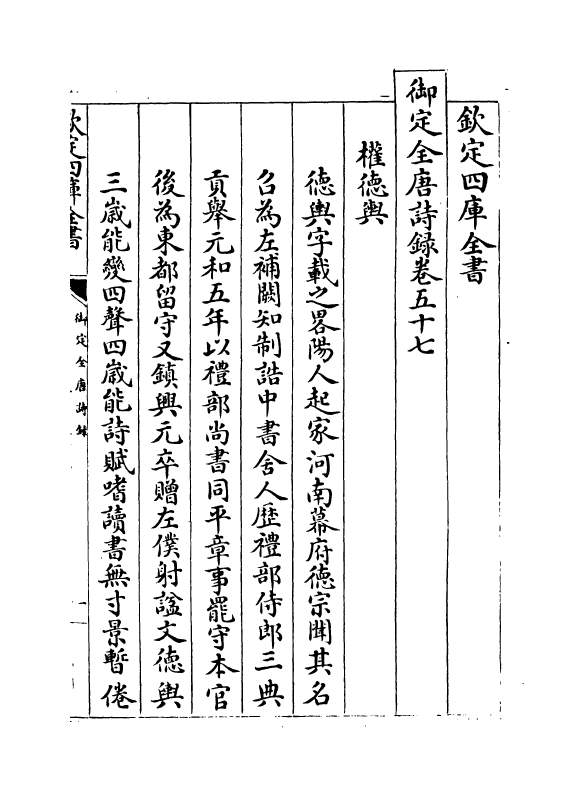 欽定四庫全書
御定全唐詩録卷五十七
權德輿
德輿字載之畧陽人起家河南幕府德宗聞其名
召為左補闕知制誥中書舍人歴禮部侍郎三典
貢舉元和五年以禮部尚書同平章事罷守本官
後為東都留守又鎮興元卒贈左僕射諡文德輿
三歳能變四聲四歳能詩賦嗜讀書無寸景暫倦
欽定四庫全書
御定全唐詩録
一